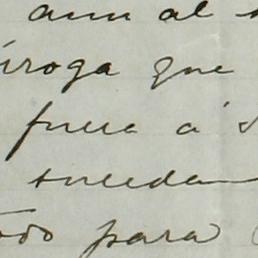 aun al
iroga que
fuera á S
sucedan
odo para